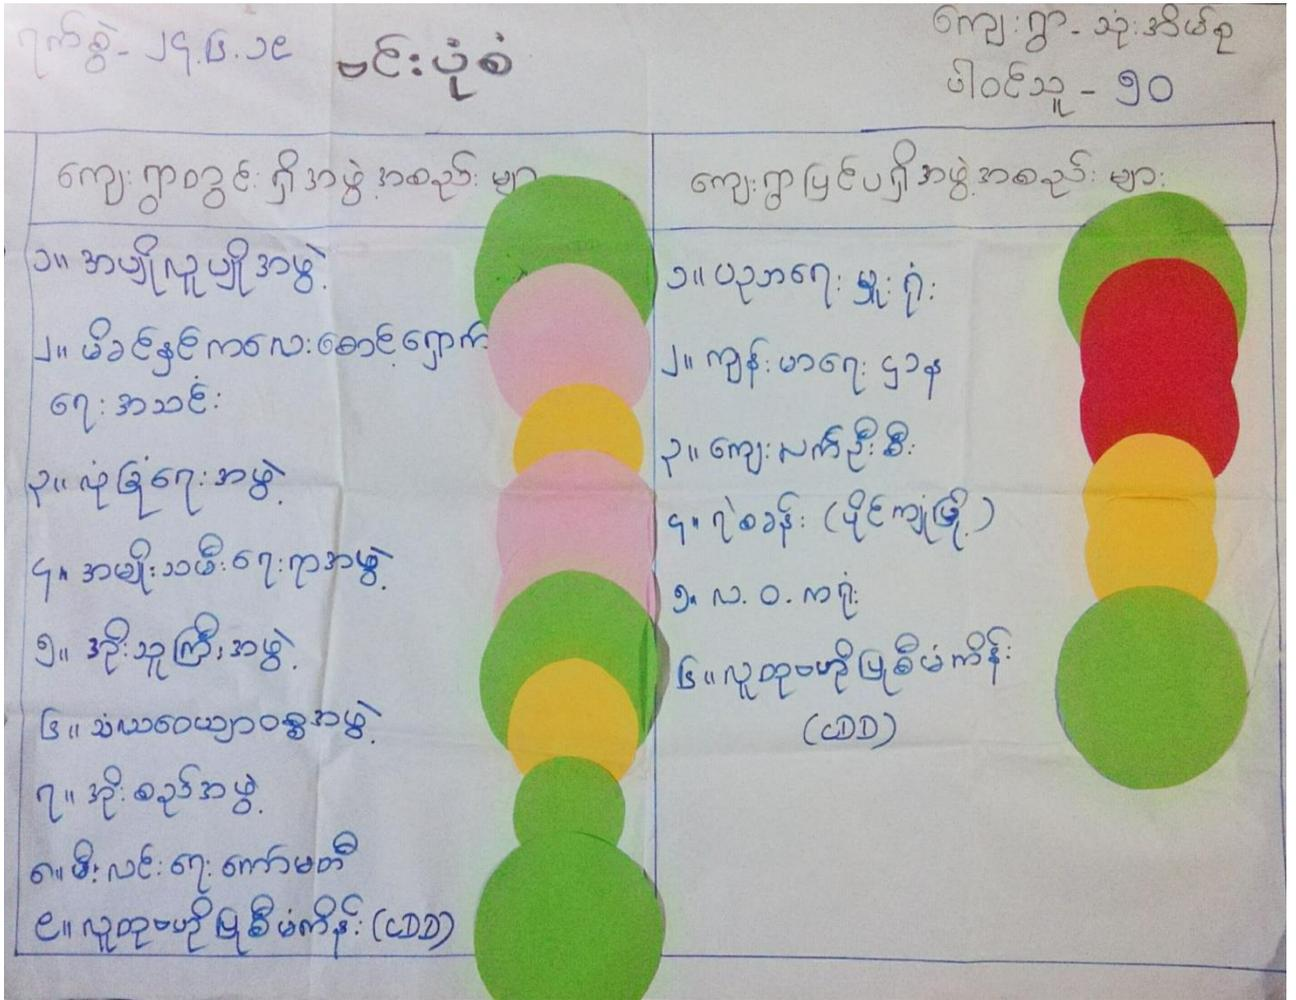 ရက်စွဲ - ၂၄.၆.၁၉
ဗင်းပုံစံ
ကျေးရွာ - သုံးအိမ်စု
ပါဝင်သူ - ၅၀
ကျေးရွာတွင်းရှိအဖွဲ့အစည်းများ
၁။ အပျိုလူပျိုအဖွဲ့
၂။ မိခင်နှင့်ကလေးစောင့်ရှောက်
ရေးအသင်း
၃။ လုံခြုံရေးအဖွဲ့
၄။ အမျိုးသမီးရေးရာအဖွဲ့
၅။ အိုးသူကြီးအဖွဲ့
၆။ သံဃဝေယျာဝစ္စအဖွဲ့
၇။ အိုးစည်အဖွဲ့
၈။ မီးလင်းရေးကော်မတီ
၉။ လူထုဗဟိုပြုစီမံကိန်း (CDD)
ကျေးရွာပြင်ပရှိအဖွဲ့အစည်းများ
၁။ ပညာရေးမှူးရုံး
၂။ ကျန်းမာရေးဌာန
၃။ ကျေးလက်ဦးစီး
၄။ ရဲစခန်း (ပိုင်ကျုံမြို့)
၅။ လ.ဝ.ကရုံး
၆။ လူထုဗဟိုပြုစီမံကိန်း
(CDD)